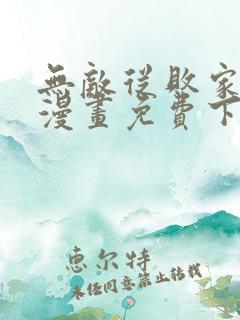 無敵從敗家
漫畫免費下
惠尔特
未经同意禁止转载